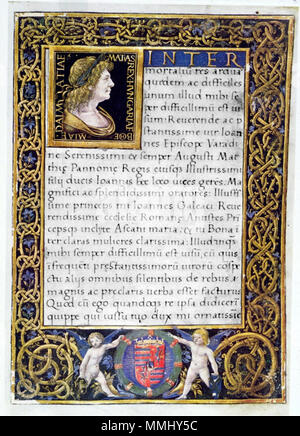 MATIAS REX HVNGARIAE BOE
MIAE DALMATIAE
INTER
mortaliū res ardua
quædem ac difficileſ
unum illud mihi ſem
per difficillimū eſt iu
ſum: Reuerende ac p
ſtantiſſime uir Ioan
nes Epiſcope Varadi
ne Sereniſſimi et ſemper Auguſti Mat
thiæ Pannonię Regis eiuſq; Illuſtriſſimi
filij ducis Ioannis hæc loco uices gerēs. Ma
gnifici ac ſplendidiſſimi oratores: Illuſtriſ
ſime princeps mi Ioannes Galeaci Reue
rendiſſime eccleſie Romanę Antiſtes Pri
cepſq; inclyte Aſcani maria: et tu Bona i
ter claras mulieres clariſſima: Illud inq̄
mihi ſemper difficillimū eſt uiſū, cū quis
ī frequēti preſtantiſſimorū uirorū coſpe
ctu alijs omnibus ſilentibus de rebus
magnis ac preclaris uerba eſſet facturus
Quod cū ego quandoq; re ipſa didicerī
quippe qui iuſſu tuo dux mi ornatiſſīe
alamy
MMHY5C